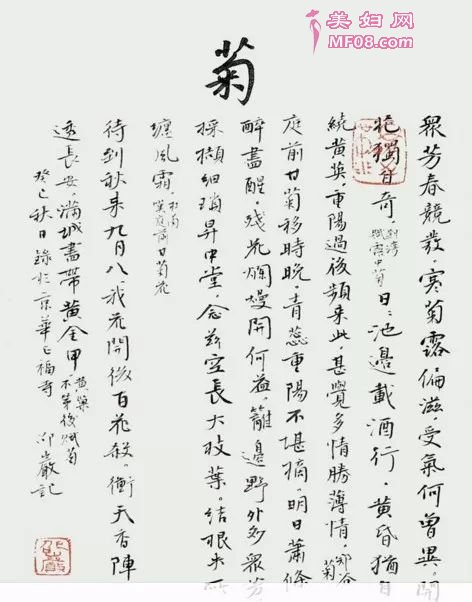 美妇网
MF08.com
菊
眾芳春競發，寒菊露偏滋，受氣何曾異，開
花獨自奇，刘湾賦露中菊 日日池邊載酒行，黃昏猶自
繞黃英，重陽過後頻來此，甚覺多情勝薄情，鄭谷菊
庭前甘菊移時晚，青蕊重陽不堪摘 明日蕭條
醉盡醒，殘花爛熳開何益，籬邊野外多眾芳
採擷細瑣昇中堂，念茲空長大枝葉。結根失所
纏風霜 杜甫嘆庭前甘菊花
待到秋來九月八 我花開後百花殺。衝天香陣
透長安，滿城盡帶黃金甲 黃巢不第後賦菊
癸巳秋日 錄於京華正福寺 邱巖記